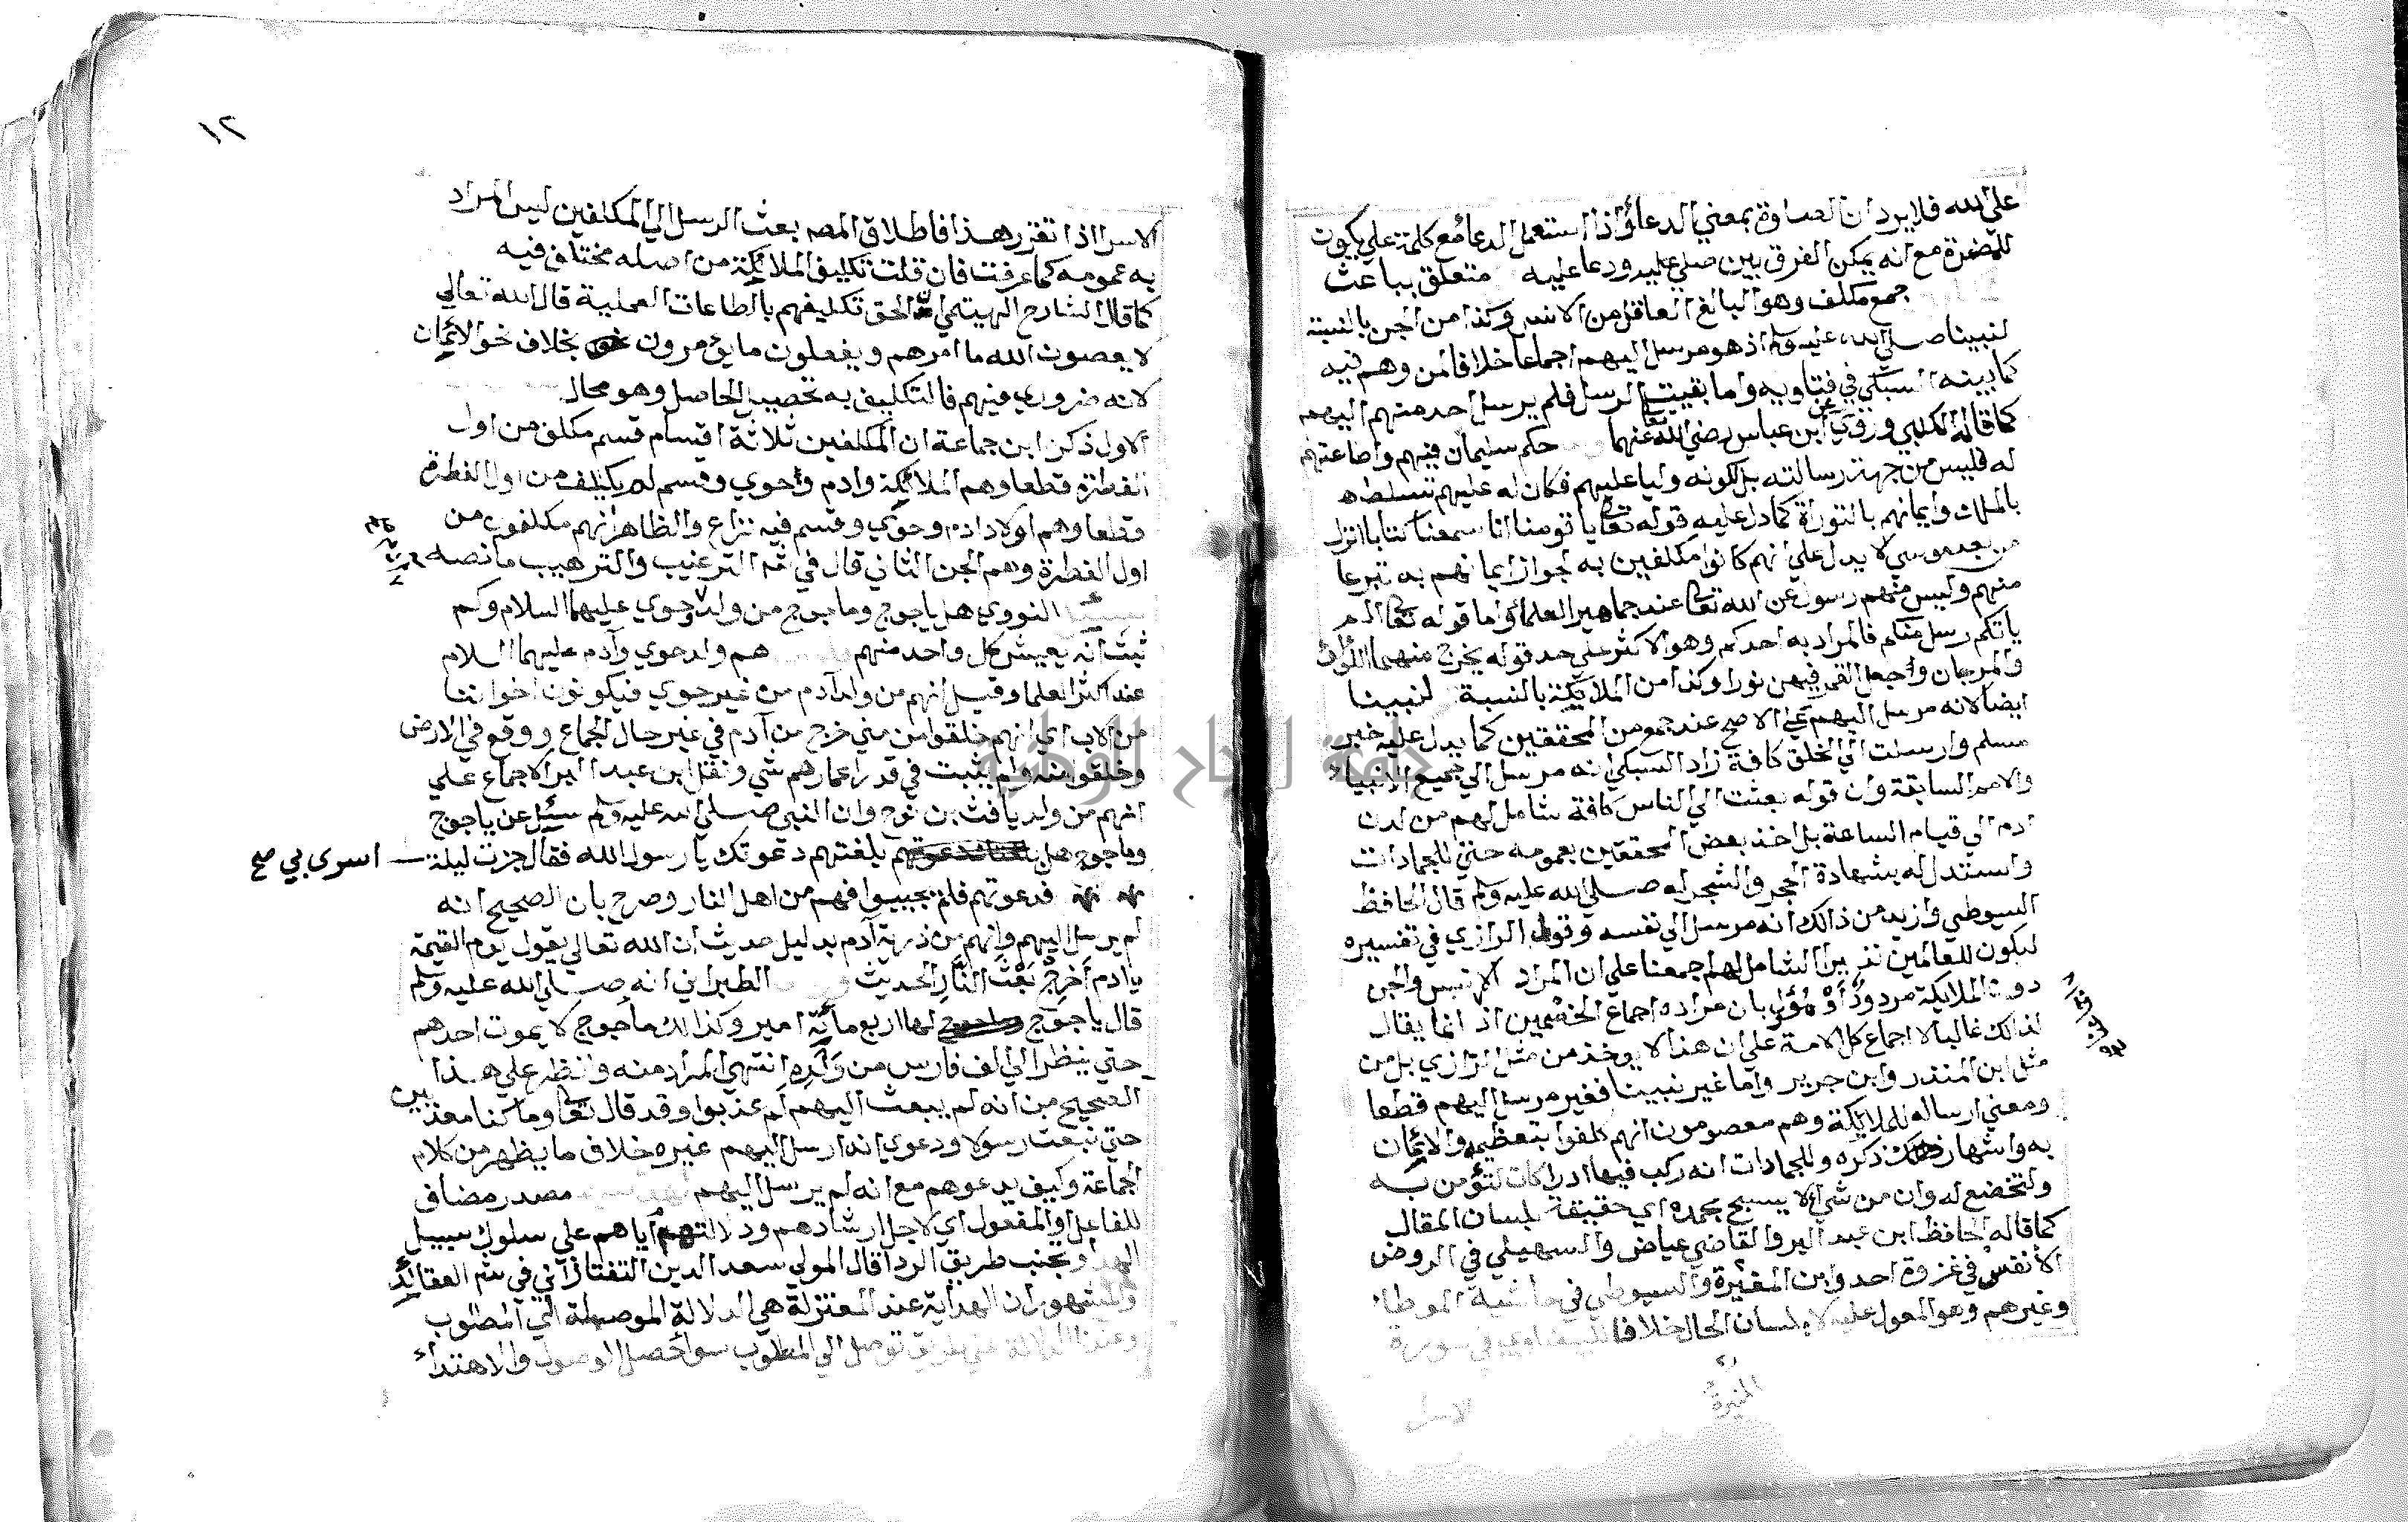 على الله فلا يرد ان الصلوة بمعني الدعا واذا استعمل الدعا مع كلمة علي يكون
للمضرة مع انه يمكن الفرق بين صلي عليه ودعا عليه متعلق بباعث
جمع مكلف وهو البالغ العاقل من الانس وكذا من الجن بالنسبة
لنبينا صلي الله عليه وسلم اذ هو مرسل اليهم اجماعا خلافا لمن وهم فيه
كما بينه السبكي في فتاويه واما بقية الرسل فلم يرسل احد منهم اليهم
كما قاله الكلبي وروي عن ابن عباس رضي الله تعالى عنهما حكم سليمان فيهم واطاعتهم
له فليس من جهة رسالته بل لكونه وليا عليهم فكان له عليهم تسلط
بالملك وايمانهم بالتوراة كما دل عليه قوله تعالى يا قومنا انا سمعنا كتابا انزل
من بعد موسي لا يدل علي انهم كانوا مكلفين به لجواز ايمانهم به تبرعا
منهم وليس منهم رسول عن الله تعالى عند جماهير العلما واما قوله تعالى الم
ياتكم رسل منكم فالمراد به احدكم وهو الانس علي حد قوله يخرج منهما اللؤلؤ
والمرجان وجعل القمر فيهن نورا وكذا من الملائكة بالنسبة لنبينا
ايضا لانه مرسل اليهم علي الاصح عند جمع من المحققين كما يدل عليه خبر
مسلم وارسلت الي الخلق كافة زاد السبكي انه مرسل الي جميع الانبياء
والامم السابقة وان قوله بعثت الي الناس كافة شامل لهم من لدن
ادم الي قيام الساعة بل اخذ بعض المحققين بعمومه حتي للجمادات
واستدل له بشهادة الحجر والشجر له صلي الله عليه وسلم قال الحافظ
السيوطي وازيد من ذالك انه مرسل الي نفسه وقول الرازي في تفسيره
ليكون للعالمين نذيرا الشامل لهم اجمعنا علي ان المراد الانس والجن
دون الملايكة مردود او مؤول بان مراده اجماع الخصمين اذ انما يقال
لذالك غالبا لا اجماع كل الامة علي ان هذا لا يوخذ من مثل الرازي بل من
مثل ابن المنذر وابن جرير واما غير نبينا فغير مرسل اليهم قطعا
ومعني ارساله للملائكة وهم معصومون انهم كلفوا بتعظيمه والايمان
به واشهار ذكره وللجمادات انه ركب فيها ادراكات لتؤمن به
ولتخضع له وان من شيء لا يسبح بحمده اي حقيقة بلسان المقال
كما قاله الحافظ ابن عبد البر والقاضي عياض والسهيلي في الروض
الانف في غزوة احد وابن المنيرة والسيوطي في حاشية الموطا
وغيرهم وهو المعول عليه لا بلسان الحال خلافا للبيضاوي في سورة
المنيرة
الاسرا
١٢
الاسرا اذا تقرر هذا فاطلاق المصه بعث الرسل الي المكلفين ليس المراد
به عمومه كما عرفت فان قلت تكليف الملائكة من اصله مختلف فيه
كما قال الشارح الهيتمي الحق تكليفهم بالطاعات العملية قال الله تعالي
لا يعصون الله ما امرهم ويفعلون ما يؤمرون بخلاف نحو الايمان
لانه ضروري فيهم فالتكليف به تحصيل الحاصل وهو محال
الاول ذكر ابن جماعة ان المكلفين ثلاثة اقسام قسم مكلف من اول
الفطرة قطعا وهم الملائكة وادم وحوي وقسم لم يكلف من اول الفطرة
قطعا وهم اولاد ادم وحوي وقسم فيه نزاع والظاهر انهم مكلفون من
اول الفطرة وهم الجن الثاني قال في شرح الترغيب والترهيب ما نصه
النووي هل ياجوج وماجوج من ولد حوي عليهما السلام وكم
ثبت انه يعيش كل واحد منهم هم ولد حوي وآدم عليهما السلام
عند اكثر العلما وقيل انهم من ولد آدم من غير حوي فيكونون اخواننا
من الاب اي انهم خلقوا من مني خرج من آدم في غير حال الجماع ووقع في الارض
وخلقوا منه ولم يثبت في قدر اعمارهم شي ونقل ابن عبد البر الاجماع علي
انهم من ولد يافث بن نوح وان النبي صلي الله عليه وسلم سئل عن ياجوج
وماجوج هل بلغتهم دعوتك يا رسول الله فقال جزت ليلة اسري بي صح
فدعوتهم فلم يجيبوا فهم من اهل النار وصرح بان الصحيح انه
لم يرسل اليهم وانهم من ذرية آدم بدليل حديث ان الله تعالي يقول يوم القيمة
يا ادم اخرج بعث النار الحديث الطبراني انه صلي الله عليه وسلم
قال ياجوج لها اربع مائة امير وكذالك ماجوج لا يموت احدهم
حتي ينظر الي الف فارس من ولده انتهي المراد منه وانظر علي هذا
الصحيح من انه لم يبعث اليهم لم عذبوا وقد قال تعالى وما كنا معذبين
حتي نبعث رسولا ودعوي انه ارسل اليهم غيره خلاف ما يظهر من كلام
الجماعة وكيف يدعوهم مع انه لم يرسل اليهم مصدر مضاف
للفاعل او المفعول اي لاجل ارشادهم ودلالتهم اياهم علي سلوك سبيل
الهدا وتجنب طريق الردا قال المولي سعد الدين التفتازاني في شرح العقائد
والمشهور ان الهداية عند المعتزلة هي الدلالة الموصلة الي المطلوب
وعندنا الدلالة علي طريق توصل الي المطلوب سوا حصل الوصول والاهتداء